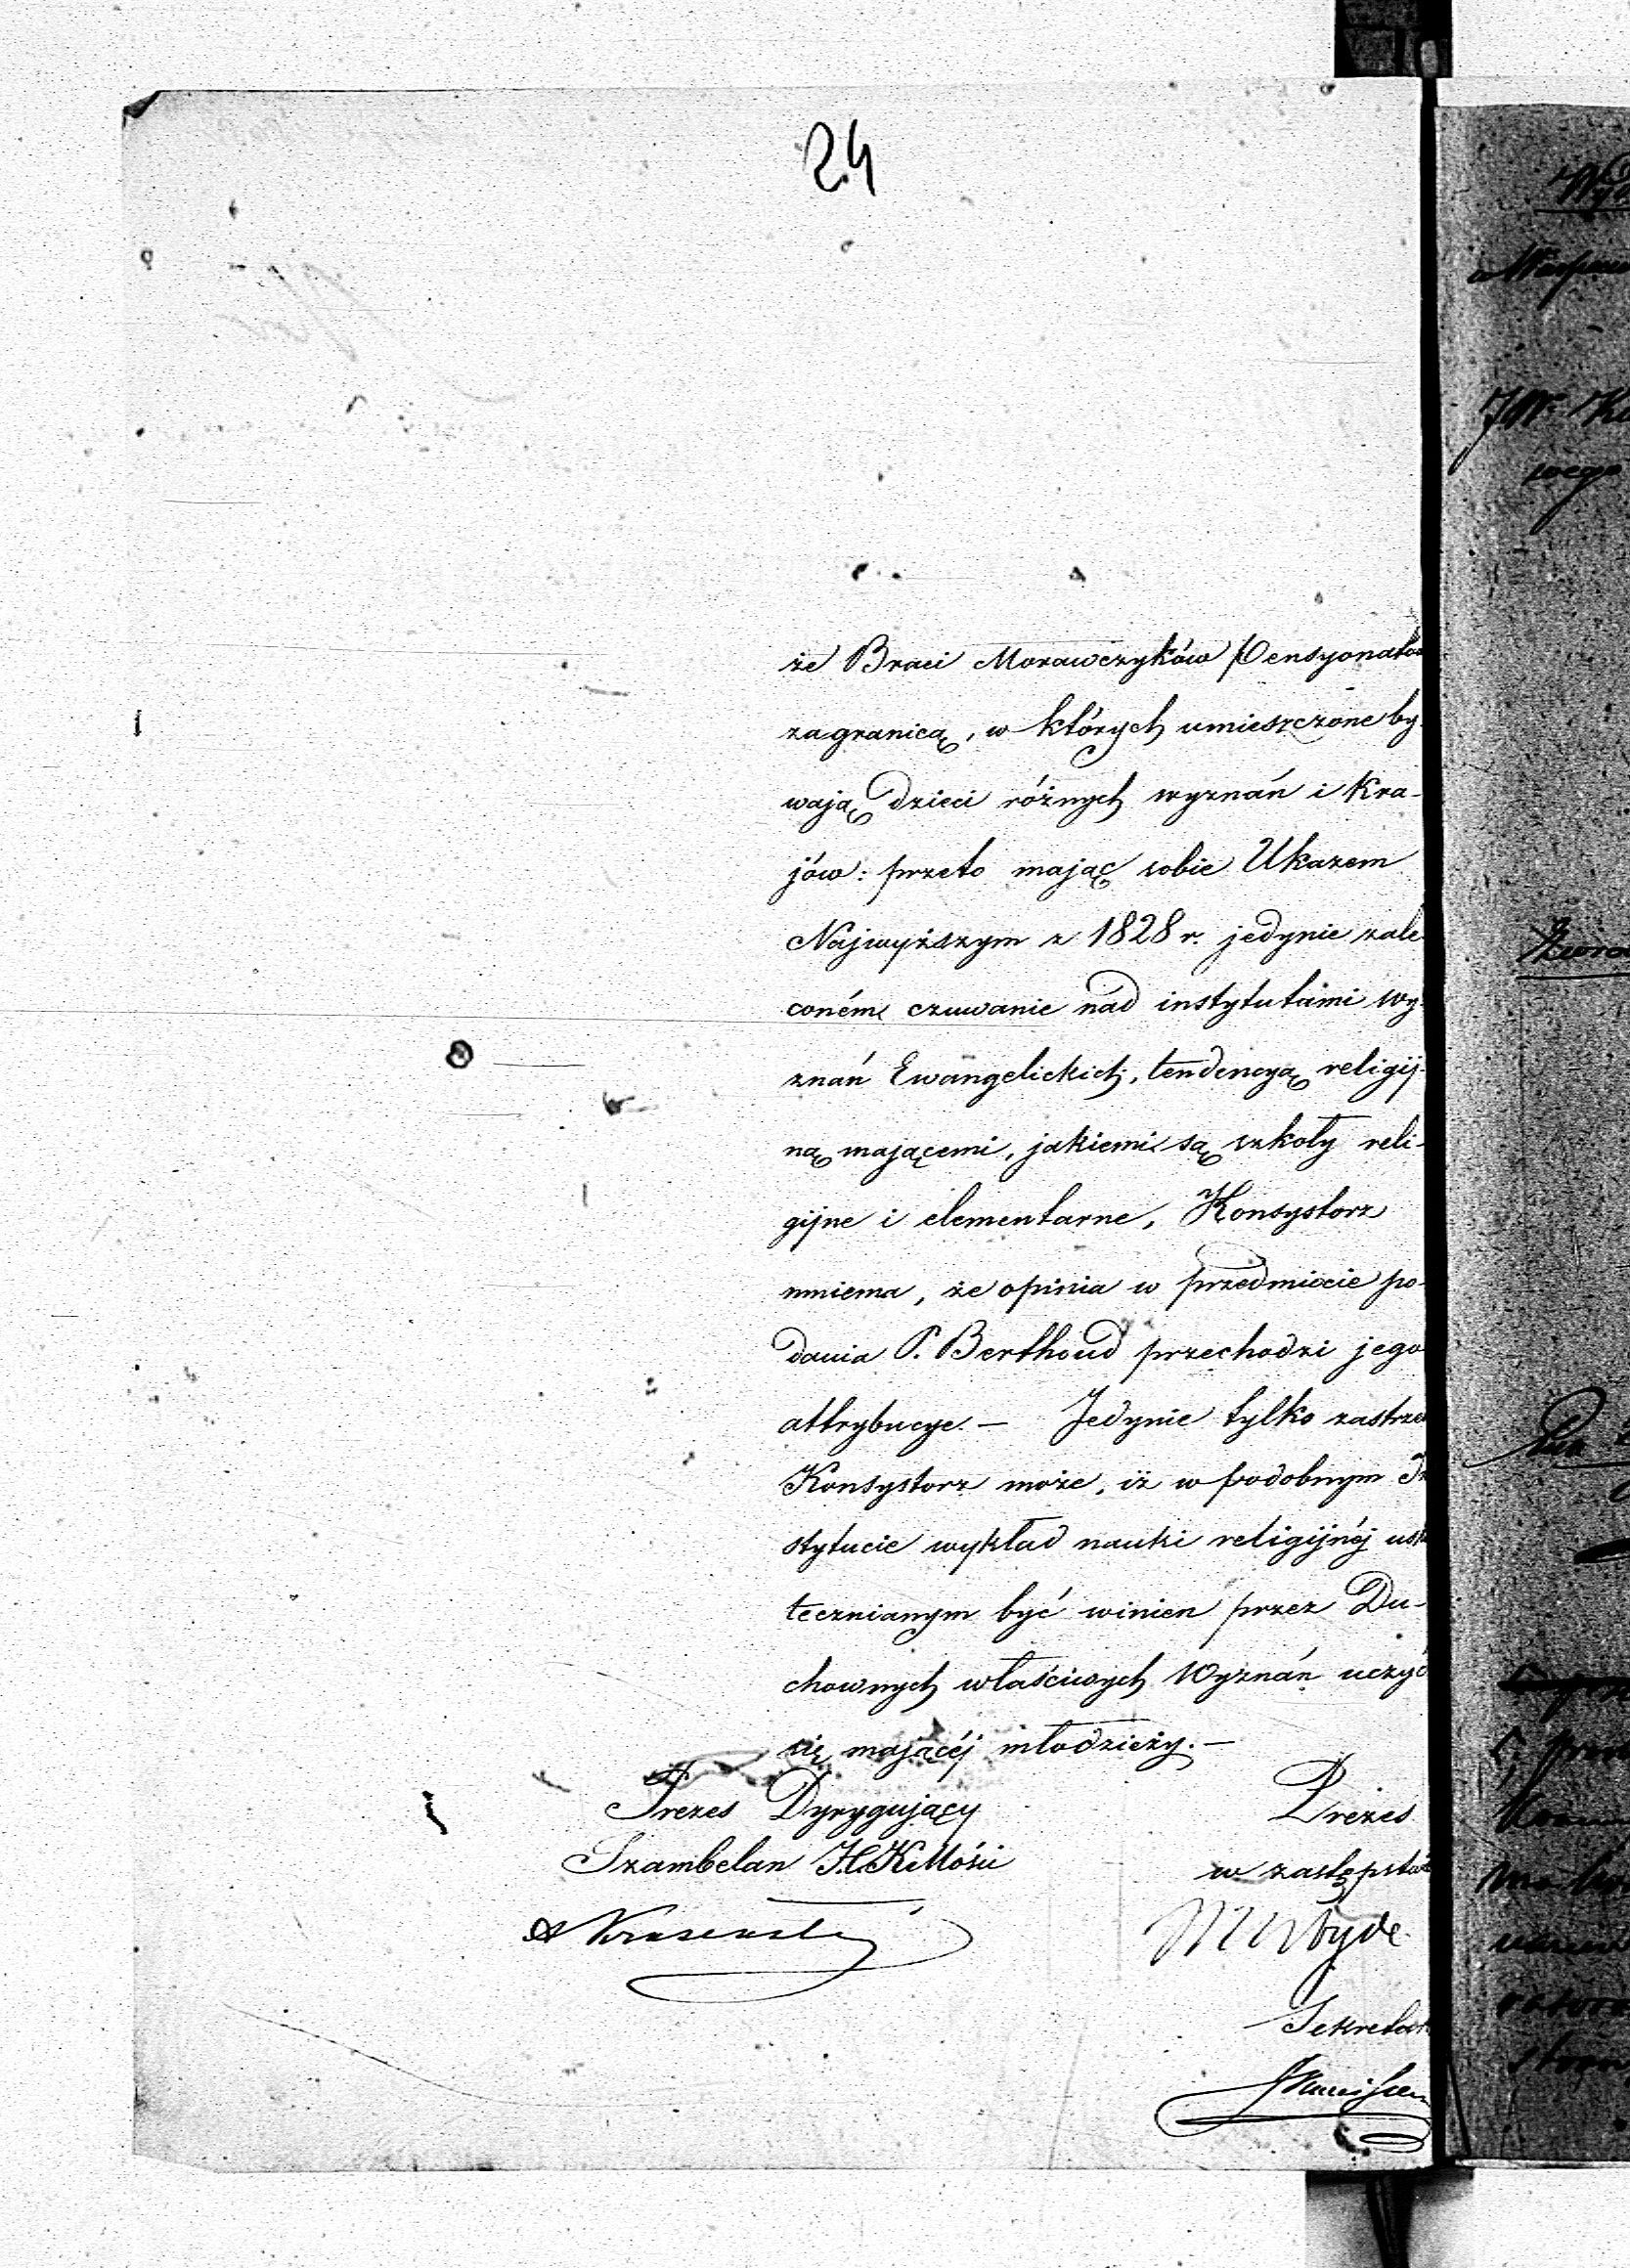 24
że Braci Morawczyków Pensyonatów
zagranicą, w których umieszczone by-
wają dzieci różnych wyznań i Kra-
jów: przeto mając sobie Ukazem
Najwyższym z 1828 r. jedynie zale-
coném czuwanie nad instytutami wy-
znań Ewangelickich, tendencyą religij-
ną mającemi, jakiemi są szkoły reli-
gijne i elementarne, Konsystorz
mniema, że opinia w przedmiocie po-
dania P. Berthoud przechodzi jego
attrybucye. — Jedynie tylko zastrzedz
Konsystorz może, iż w podobnym In-
stytucie wykład nauki religijnéj usku-
tecznianym być winien przez Du-
chownych właściwych Wyznań uczyć
się mającéj młodzieży. —
Prezes Dyrygujący
Szambelan J.C.K.Mości
Prezes
w zastępstwie
Sekretarz